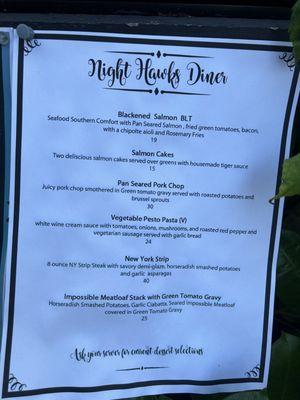 Night Hawks Diner
Blackened Salmon BLT
Seafood Southern Comfort with Pan Seared Salmon , fried green tomatoes, bacon,
with a chipolte aioli and Rosemary Fries
19
Salmon Cakes
Two delicious salmon cakes served over greens with housemade tiger sauce
15
Pan Seared Pork Chop
Juicy pork chop smothered in Green tomato gravy served with roasted potatoes and
brussel sprouts
30
Vegetable Pesto Pasta (V)
white wine cream sauce with tomatoes, onions, mushrooms, and roasted red pepper and
vegetarian sausage served with garlic bread
24
New York Strip
8 ounce NY Strip Steak with savory demi-glaze, horseradish smashed potatoes
and garlic asparagas
40
Impossible Meatloaf Stack with Green Tomato Gravy
Horseradish Smashed Potatoes, Garlic Ciabatta, Seared Impossible Meatloaf
covered in Green Tomato Gravy
25
Ask your server for current dessert selections